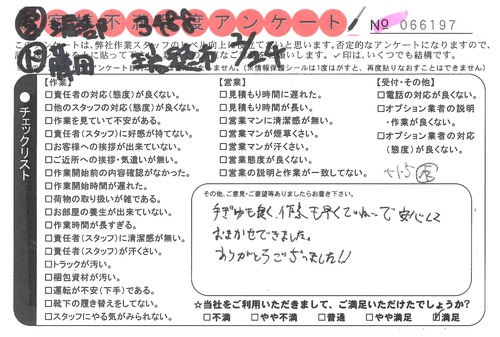 不満度アンケート № 066197
このアンケートは、弊社作業スタッフのレベル向上に役立てたいと思います。否定的なアンケートになりますので、
シールを上に貼って下さい。お願いします。✓印は、いくつでも結構です。
（※情報保護シールは1度はがすと、再度貼りなおすことはできません）
チェックリスト
【作業】
□責任者の対応(態度)が良くない。
□他のスタッフの対応(態度)が良くない。
□作業を見ていて不安がある。
□責任者(スタッフ)に好感が持てない。
□お客様への挨拶が出来ていない。
□ご近所への挨拶・気遣いが無い。
□作業開始前の内容確認がなかった。
□作業開始時間が遅れた。
□荷物の取り扱いが雑である。
□お部屋の養生が出来ていない。
□作業時間が長すぎる。
□責任者(スタッフ)に清潔感が無い。
□責任者(スタッフ)が汗くさい。
□トラックが汚い。
□梱包資材が汚い。
□運転が不安(下手)である。
□靴下の履き替えをしてない。
□スタッフにやる気がみられない。
【営業】
□見積もり時間に遅れた。
□見積もり時間が長い。
□営業マンに清潔感が無い。
□営業マンが煙草くさい。
□営業マンが汗くさい。
□営業態度が良くない。
□営業の説明と作業が一致してない。
【受付・その他】
□電話の対応が良くない。
□オプション業者の説明
・作業が良くない。
□オプション業者の対応
(態度)が良くない。
その他、ご意見・ご要望等ありましたらお書き下さい。
手ぎわも良く、作業も早くていねいで安心して
おまかせできました。
ありがとうございました!!
☆当社をご利用いただきまして、ご満足いただけたでしょうか?
□不満 □やや不満 □普通 □やや満足 ☑満足